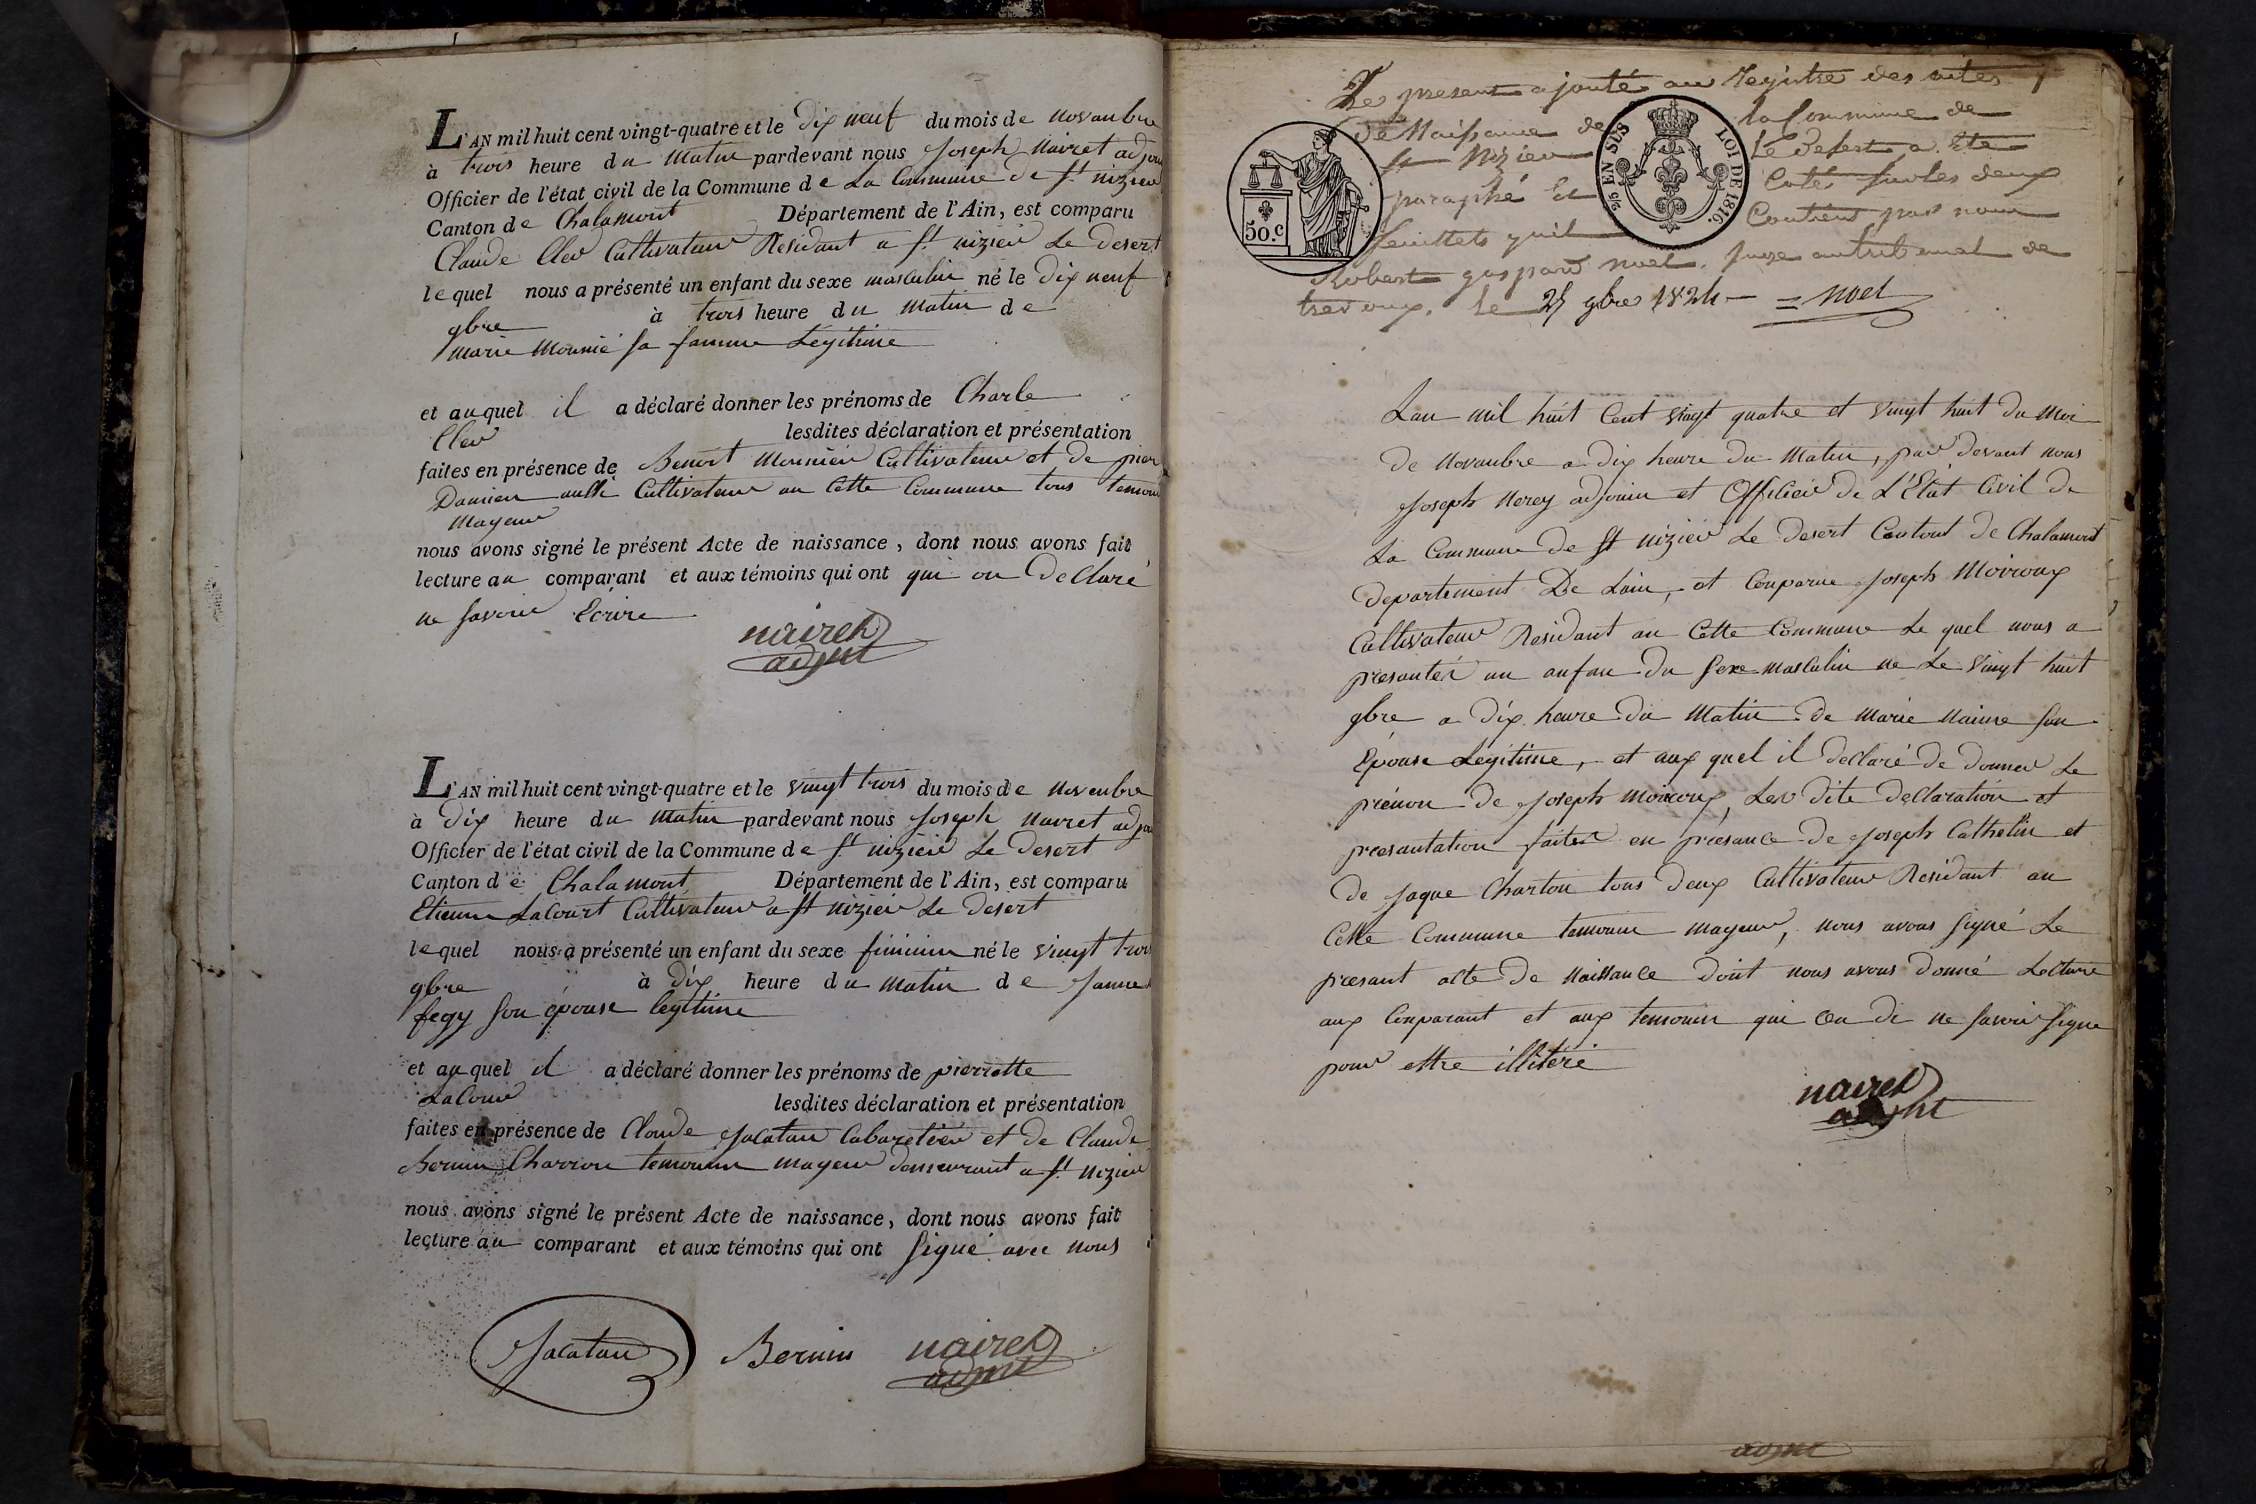 L'AN mil huit cent vingt-quatre et le dix neuf du mois de novanbre
à trois heure du matin pardevant nous Joseph Nairet adjoin
Officier de l'état civil de la Commune de La Commune de St nizier
Canton de Chalamont Département de l'Ain, est comparu
Claude Cler Cultivateur Residant a St nizier Le desert
lequel nous a présenté un enfant du sexe masculin né le dix neuf
9bre à trois heure du matin de
marie Mounié sa famme Legitime
et auquel il a déclaré donner les prénoms de Charle
Cler lesdites déclaration et présentation
faites en présence de Benoit Mounier Cultivateur et de pierr
Damien aussi Cultivateur an Cette Commune tous temoin
mayeur
nous avons signé le présent Acte de naissance, dont nous avons fait
lecture au comparant et aux témoins qui ont qui on declaré
ne savoir Ecrire
nairet
adjnt
L'AN mil huit cent vingt-quatre et le vingt trois du mois de novenbre
à dix heure du matin pardevant nous Joseph Nairet adjoi
Officier de l'état civil de la Commune de St nizier Le desert
Canton de Chalamont Département de l'Ain, est comparu
Etienne Lacourt Cultivateur a St nizier Le desert
lequel nous a présenté un enfant du sexe fiminin né le vingt trois
9bre à dix heure du matin de Janne
fegy son épouse legitime
et auquel il a déclaré donner les prénoms de pierrette
Lacour lesdites déclaration et présentation
faites en présence de Claude Jacatau Cabaretier et de Claude
Bernin Charron temouin mayeur demeurant a St nizier
nous avons signé le présent Acte de naissance, dont nous avons fait
lecture au comparant et aux témoins qui ont signé avec nous
Jacatau Bernin nairet
adjnt
Le present ajouté au Registre des actes
de Naissance de la Commune de
St Nizier Le Desert a Eté
paraphé Et Coté sur les deux
feuillets quil Contient par nous
Robert gaspard noel. juge au tribunal de
trevoux. Le 25 9bre 1824 = Noel
50.c
25 EN SUS LOI DE 1816.
Lan mil huit Cent vingt quatre et vingt huit du moi
de Novanbre a dix heure du matin, par devant nous
Joseph Nerey adjoin et Officier de L'Etat Civil de
La Commune de St nizier Le Desert Cantont de Chalamont
departement De Lain, et Conparue Joseph Moiroux
Cultivateur Residant an Cette Commune Le quel nous a
presanter un anfan du sexe masculin ne Le vingt huit
9bre a dix heure du matin de marie Naime son
Epouse Legitime, et aux quel il declaré de donner Le
prénon de Joseph moiroux, Les dite declaration et
presantation faiter en presance de Joseph Cathelin et
de Jaque Charton tous deux Cultivateur Residant an
Cette Commune temouin mayeur, nous avons signé Le
presant acte de Naissance dont nous avons donné Lecture
aux Conparant et aux temouin qui on di ne savoir signe
pour estre illiteré
nairet
adjnt
adjnt